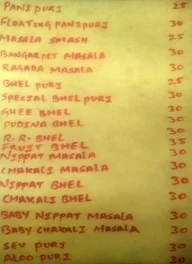 PANIPURI 25
FLOATING PANIPURI 30
MASALA SMASH 25
BANGARPET MASALA 30
RAGADA MASALA 30
BHEL PURI 25
SPECIAL BHEL PURI 30
GHEE BHEL 30
PUDINA BHEL 30
R.R. BHEL 30
FRUIT BHEL 35
NIPPAT MASALA 30
CHAKALI MASALA 30
NIPPAT BHEL 30
CHAKALI BHEL 30
BABY NIPPAT MASALA 30
BABY CHAKALI MASALA 30
SEV PURI 30
ALOO PURI 30